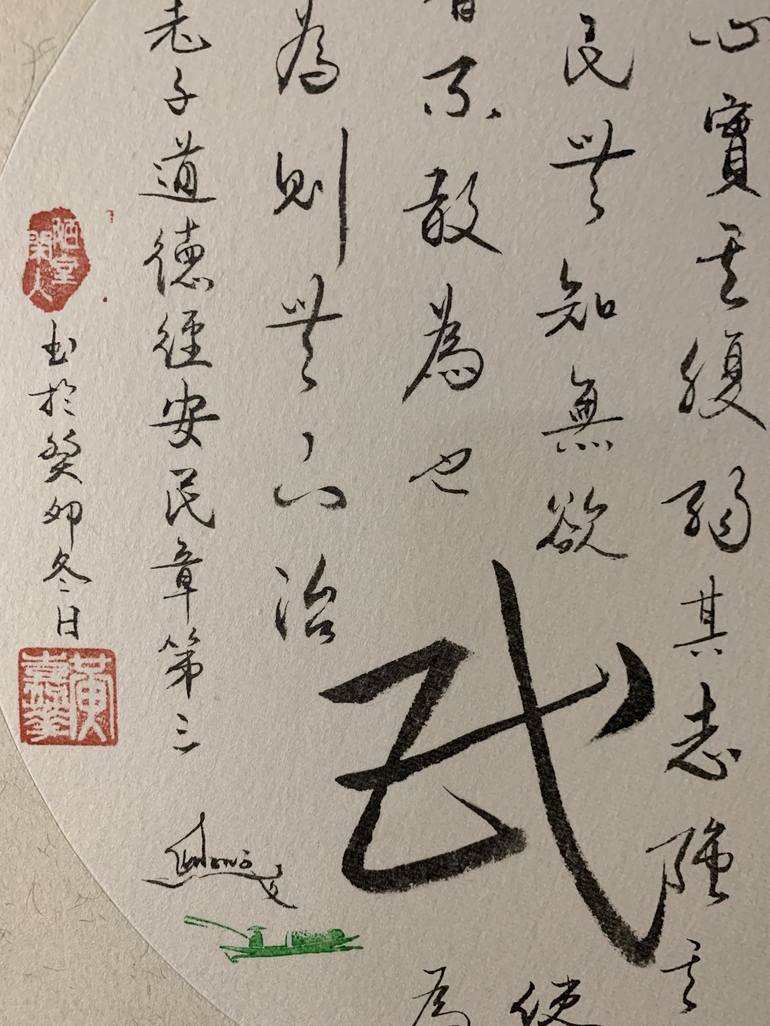 心實其腹弱其志強其
民無知無欲
使
者不敢為也
為
為則無不治
民
老子道德經安民章第三
陋室閑人
書於癸卯冬日